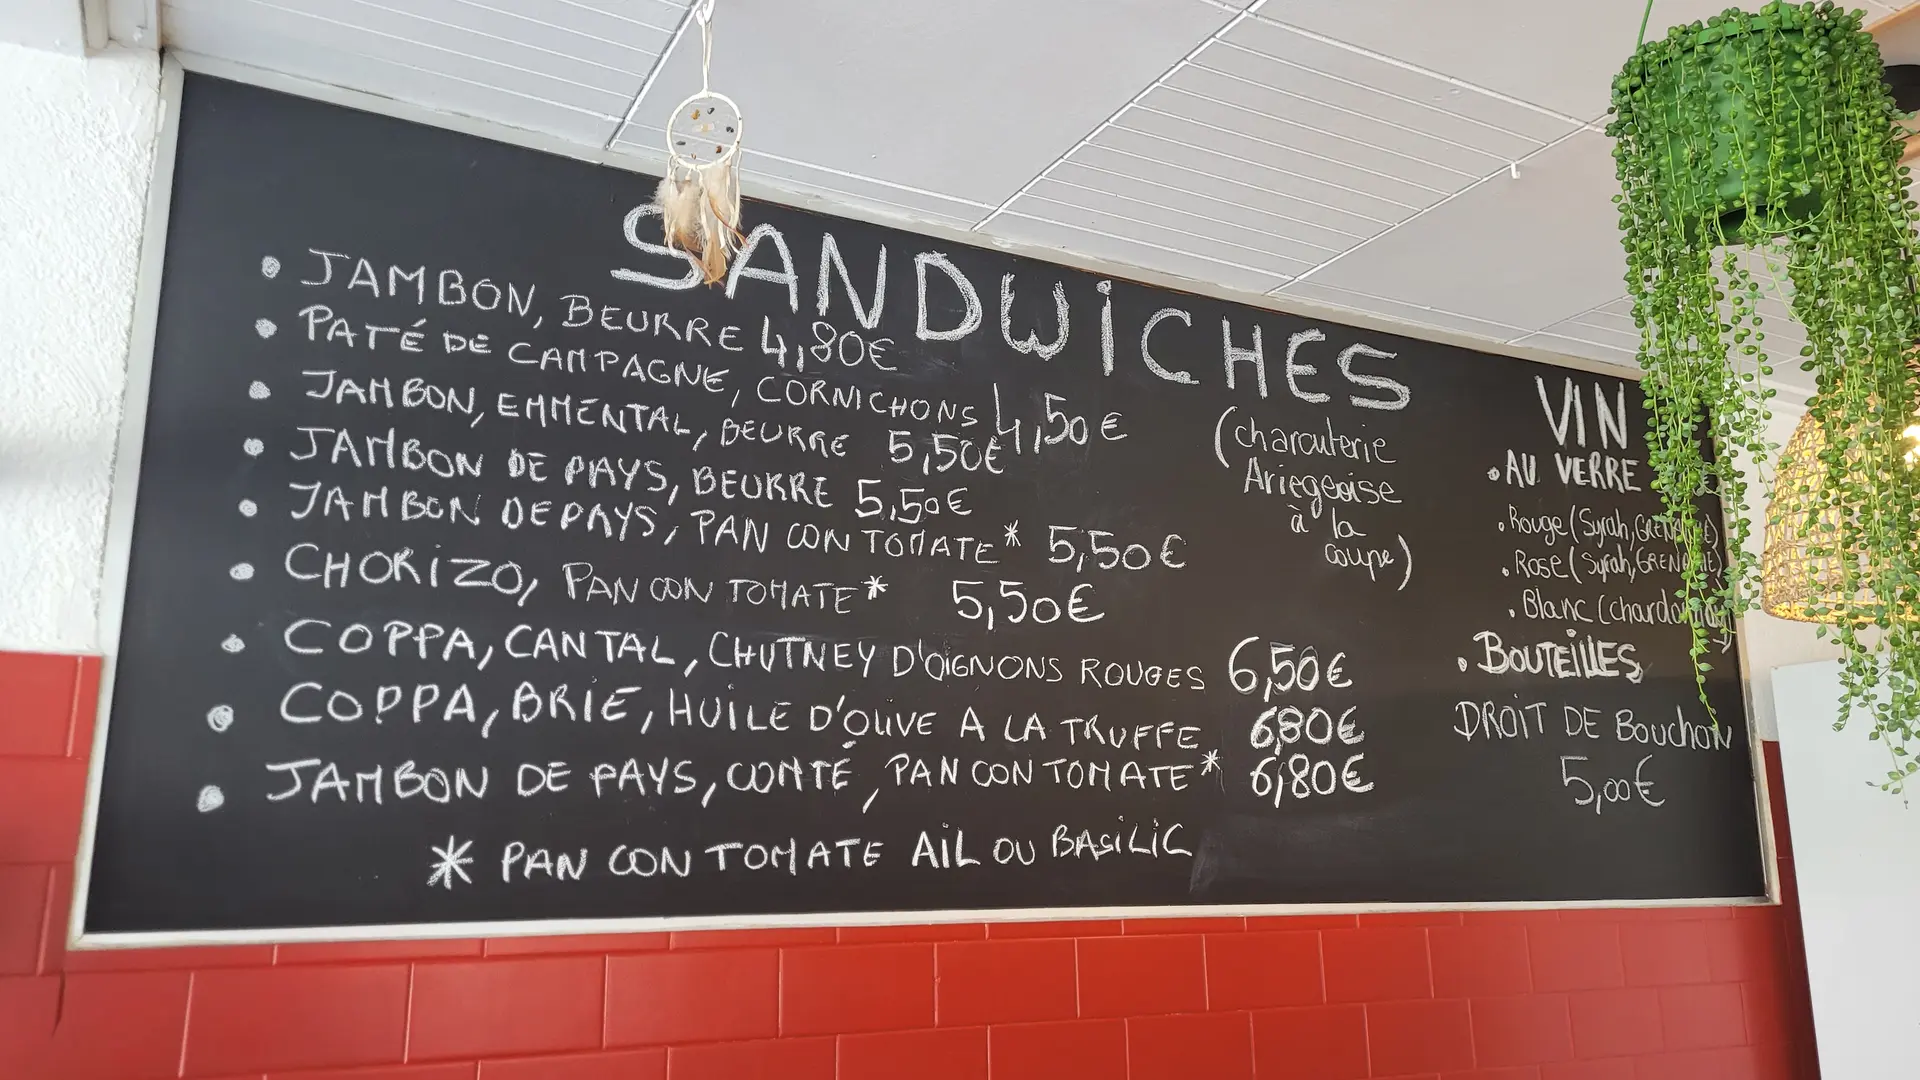 SANDWICHES
• JAMBON, BEURRE 4,80€
• PATÉ DE CAMPAGNE, CORNICHONS 4,50€
• JAMBON, EMMENTAL, BEURRE 5,50€
• JAMBON DE PAYS, BEURRE 5,50€
• JAMBON DE PAYS, PAN CON TOMATE* 5,50€
• CHORIZO, PAN CON TOMATE* 5,50€
• COPPA, CANTAL, CHUTNEY D'OIGNONS ROUGES 6,50€
• COPPA, BRIE, HUILE D'OLIVE A LA TRUFFE 6,80€
• JAMBON DE PAYS, COMTÉ, PAN CON TOMATE* 6,80€
* PAN CON TOMATE AIL OU BASILIC
(charcuterie
Ariegeoise
à la
coupe)
VIN
• AU VERRE
• Rouge (Syrah,
• Rosé (Syrah,
• Blanc (chardonnay)
• BOUTEILLES
DROIT DE Bouchon
5,00€